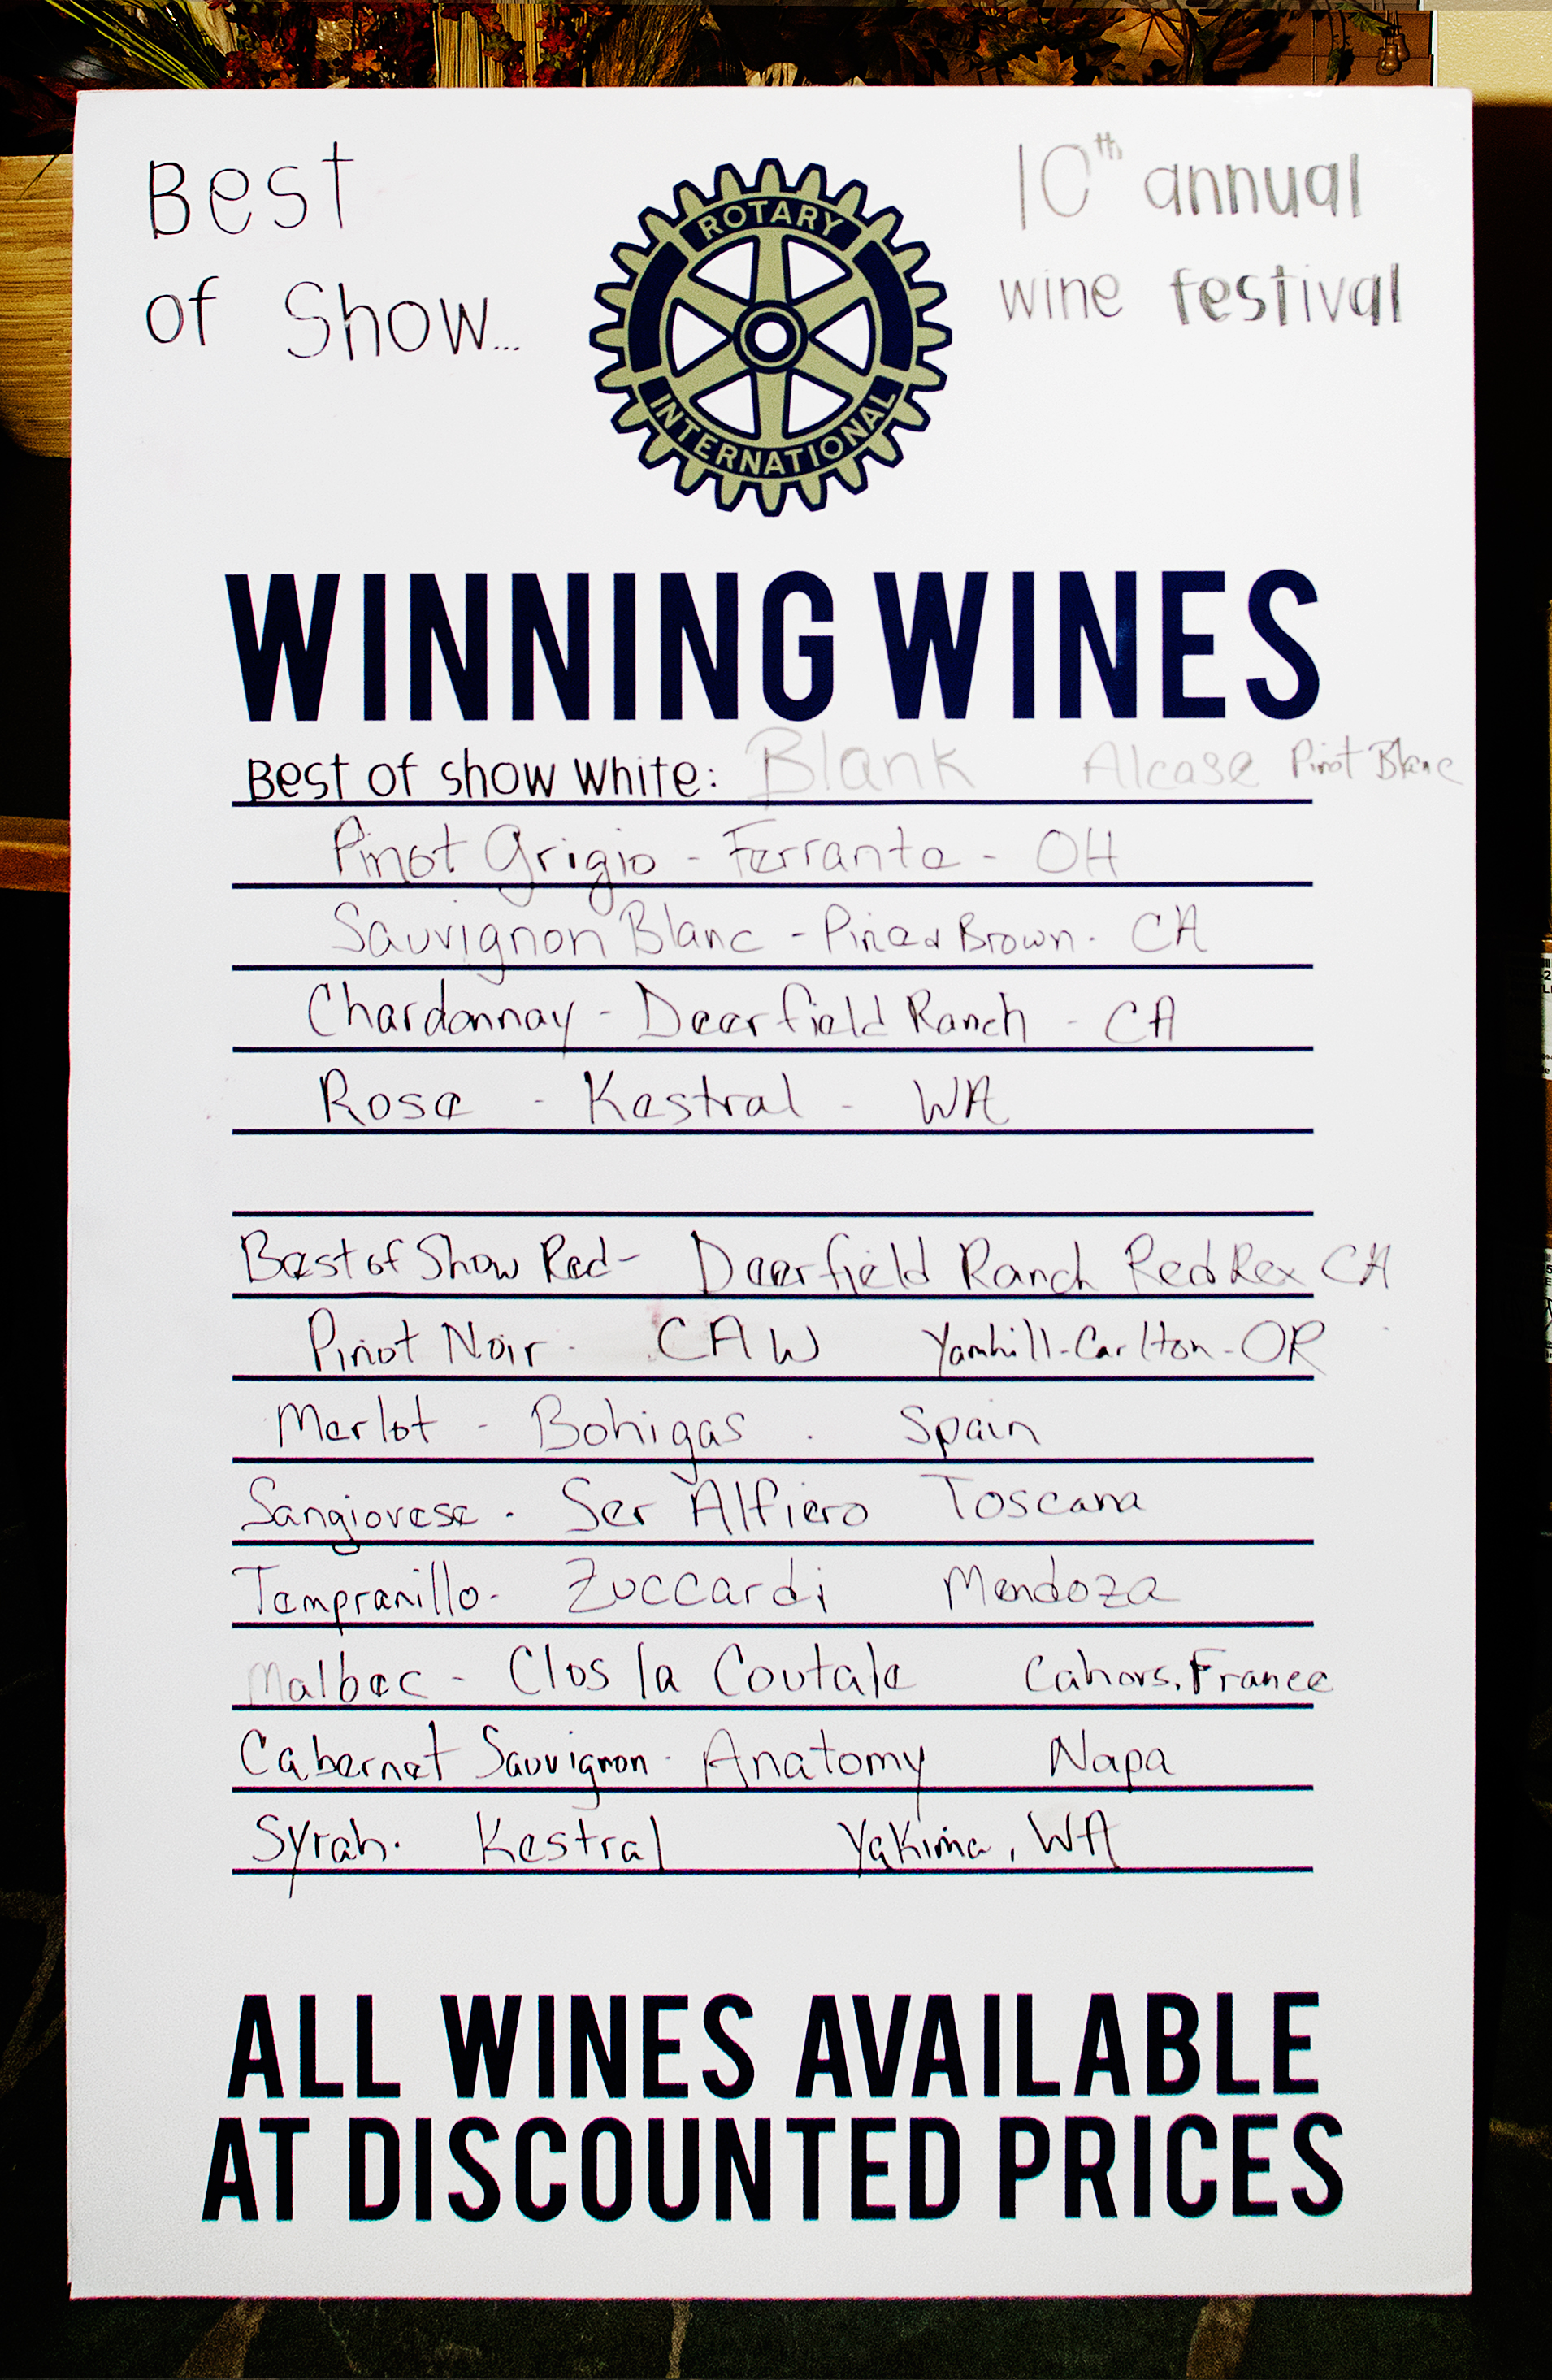 Best
of Show...
10th annual
wine festival
ROTARY
INTERNATIONAL
WINNING WINES
Best of show white: Blank Alcase Pinot Blanc
Pinot Grigio - Ferrante - OH
Sauvignon Blanc - Brown. CA
Chardonnay - Deerfield Ranch - CA
Rose - Kestral - WA
Best of Show Red - Deerfield Ranch Red Rex CA
Pinot Noir - CAW Yamhill-Carlton-OR
Merlot - Bohigas . Spain
Sangiovese . Ser Alfiero Toscana
Tempranillo - Zuccardi Mendoza
Malbec - Clos la Coutale Cahors, France
Cabernet Sauvignon - Anatomy Napa
Syrah. Kestral Yakima, WA
ALL WINES AVAILABLE
AT DISCOUNTED PRICES